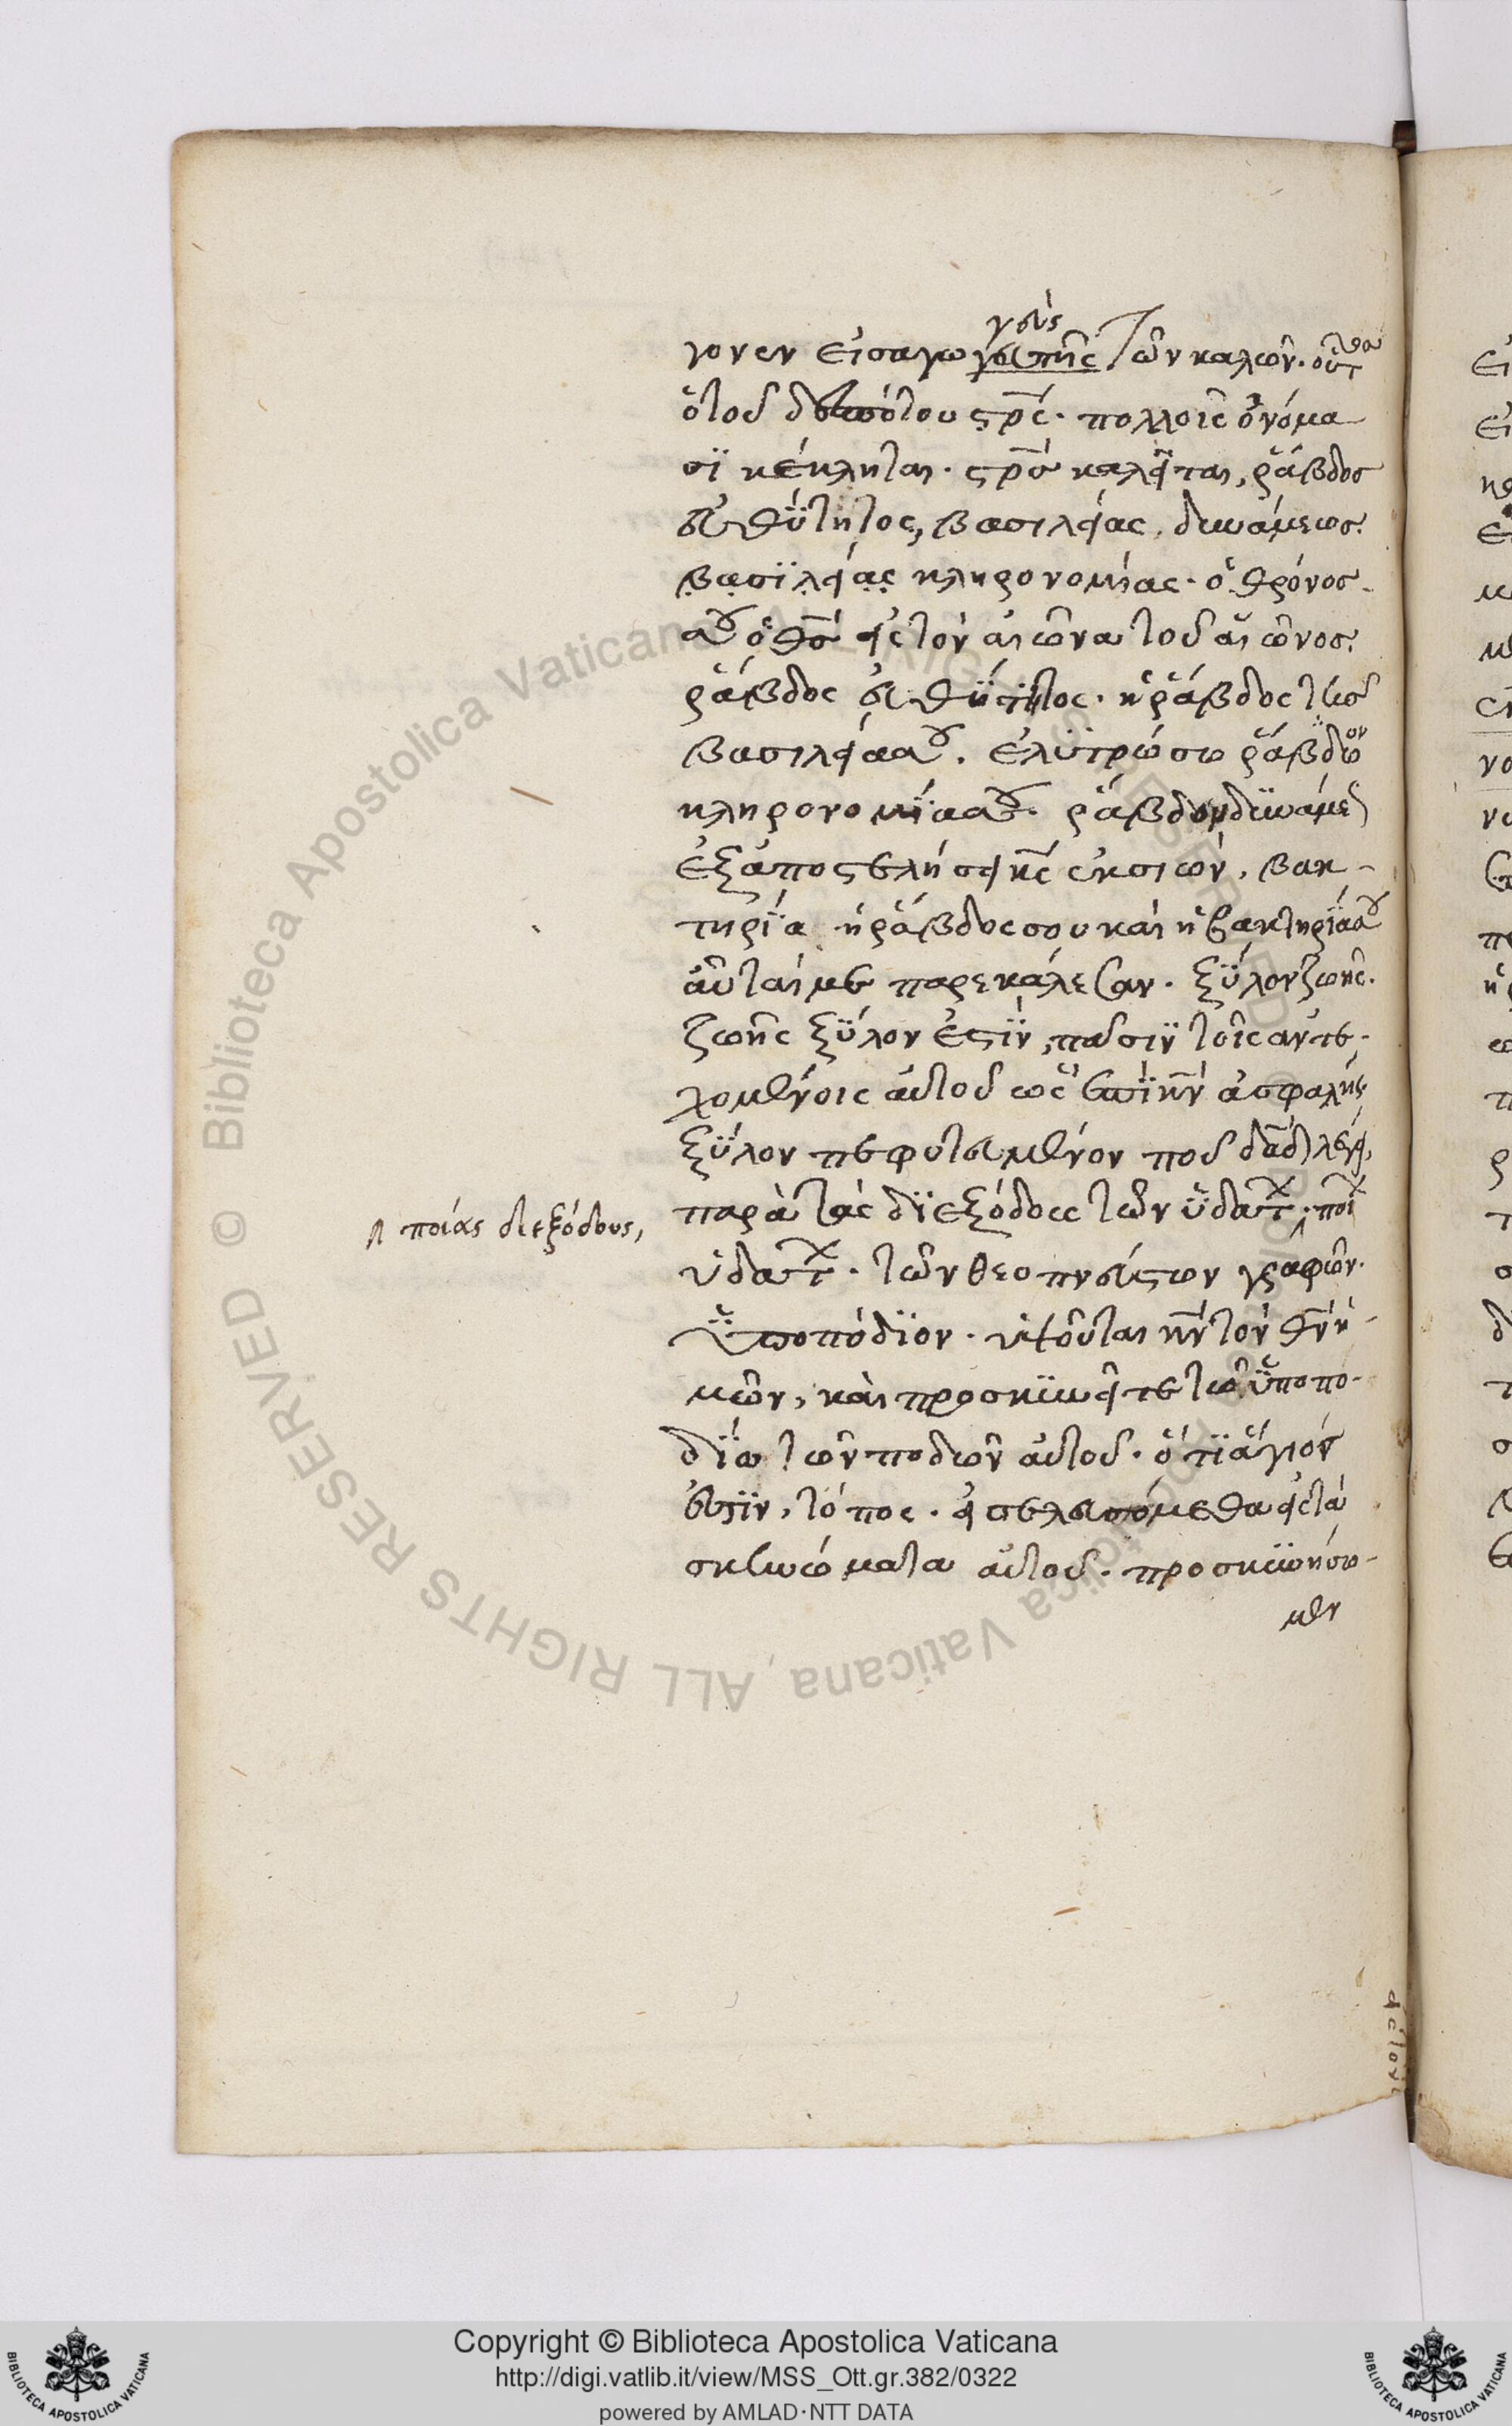 γοὺς
γονεν εἰσαγωγεύτης τῶν καλῶν. οὗτος
ὁ τοῦ δεσπότου σ̅ρ̅ς. πολλοῖς ὀνόμα
σϊ κέκληται. σ̅ρ̅ο̅σ̅ καλεῖται, ῥάβδος
εὐθύτητος, βασιλείας, δυνάμεως.
βασϊλείας κληρονομίας. ὁ θρόνος
σου ὁ θ̅σ̅ εἰς τὸν αἰῶνα τοῦ αἰῶνος.
ῥάβδος εὐθύτητος. ἡ ῥάβδος τῆς
βασιλείας σου. ἐλυτρώσω ῥάβδον
κληρονομίας σου. ῥάβδον δυνάμεως
ἐξαποστελεῖ σοι κ̅ς̅ ἐκ σιών, βακ-
τηρία ἡ ῥάβδος σου καὶ ἡ βακτηρία σου
αὗταί με παρεκάλεσαν. ξύλον ζωῆς.
ζωῆς ξύλον ἐστὶν, πᾶσιν τοῖς ἀντε-
χομένοις αὐτοῦ ὡς ἐπὶ κ̅ν̅ ἀσφαλής,
ξύλον πεφυτευμένον ποῦ δ̅α̅δ̅ λέγει,
παρὰ τὰς διεξόδους τῶν ὑδάτων. ποίων
⸌ ποίας διεξόδους,
ὑδάτων. τῶν θεοπνεύστων γραφῶν.
ὑποπόδιον. ὑψοῦται κ̅ν̅ τὸν θ̅ν̅ ἡ-
μῶν, καὶ προσκυνεῖτε τῶ ὑποπο-
δίω τῶν ποδῶν αὐτοῦ. ὅτι ἅγιόν
ἐστιν, τόπος. εἰσελευσόμεθα εἰς τὰ
σκηνώματα αὐτοῦ. προσκυνήσω-
μεν
Copyright © Biblioteca Apostolica Vaticana
http://digi.vatlib.it/view/MSS_Ott.gr.382/0322
powered by AMLAD·NTT DATA